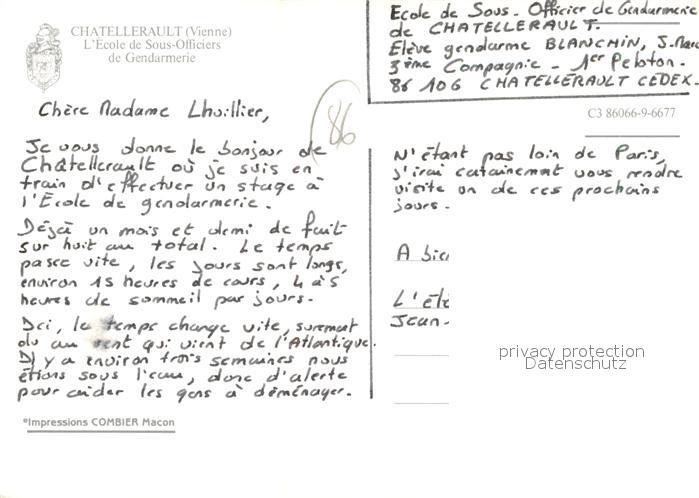 CHATELLERAULT (Vienne)
L'Ecole de Sous-Officiers
de Gendarmerie
Ecole de Sous-Officier de Gendarmerie
de CHATELLERAULT.
Elève gendarme BLANCHIN, J-Marc
3ème Compagnie - 1er Peloton.
86 106 CHATELLERAULT CEDEX.
C3 86066-9-6677
86
Chère Madame Lhuillier,
Je vous donne le bonjour de
Châtellerault où je suis en
train d'effectuer un stage à
l'École de gendarmerie.
Déjà un mois et demi de fait
sur huit au total. Le temps
passe vite, les jours sont longs,
environ 15 heures de cours, 4 à 5
heures de sommeil par jours.
Ici, le temps change vite, surement
dû au vent qui vient de l'Atlantique.
Il y a environ trois semaines nous
étions sous l'eau, donc d'alerte
pour aider les gens à déménager.
N'étant pas loin de Paris,
j'irai certainement vous rendre
visite un de ces prochains
jours.
A bie
L'élè
Jean-
privacy protection
Datenschutz
*Impressions COMBIER Macon